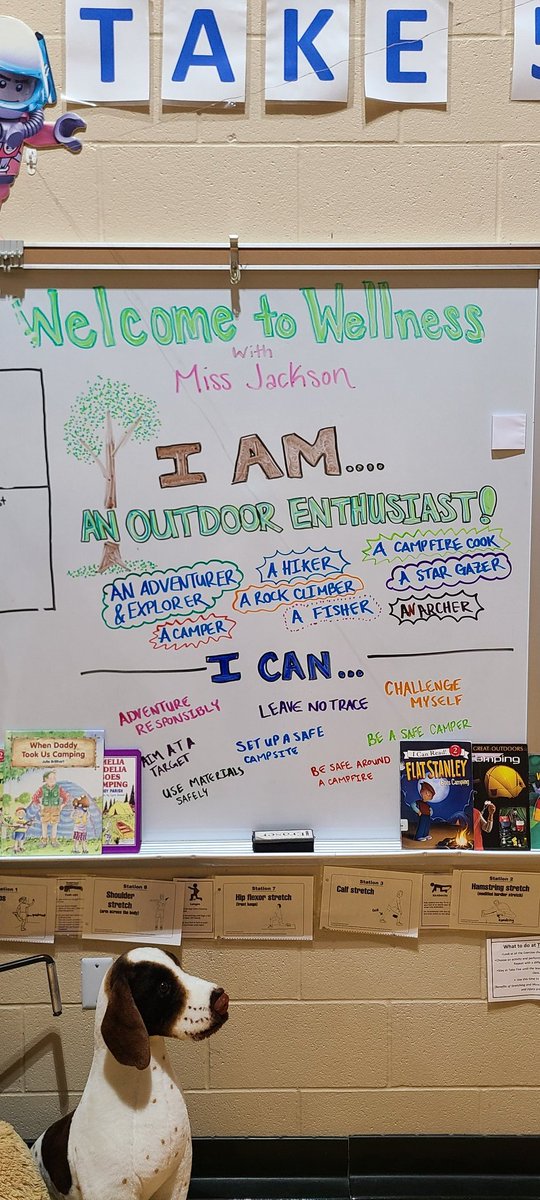 TAKE 5
Welcome to Wellness
with
Miss Jackson
I AM....
AN OUTDOOR ENTHUSIAST!
A CAMPFIRE COOK
A HIKER
AN ADVENTURER
& EXPLORER
A STAR GAZER
A ROCK CLIMBER
A FISHER
AN ARCHER
A CAMPER
I CAN...
ADVENTURE
RESPONSIBLY
LEAVE NO TRACE
CHALLENGE
MYSELF
AIM AT A
TARGET
SET UP A SAFE
CAMPSITE
BE A SAFE CAMPER
USE MATERIALS
SAFELY
BE SAFE AROUND
A CAMPFIRE
When Daddy
Took Us Camping
Julie Brillhart
MELIA
DELIA
GOES
CAMPING
PARISH
I Can Read! 2
FLAT STANLEY
Goes Camping
GREAT OUTDOORS
camping
Eraser
Station 1
Station 6
Shoulder
stretch
(arm across the body)
Station 7
Hip flexor stretch
(front lunge)
Station 3
Calf stretch
Station 2
Hamstring stretch
(modified hurdler stretch)
What to do at T